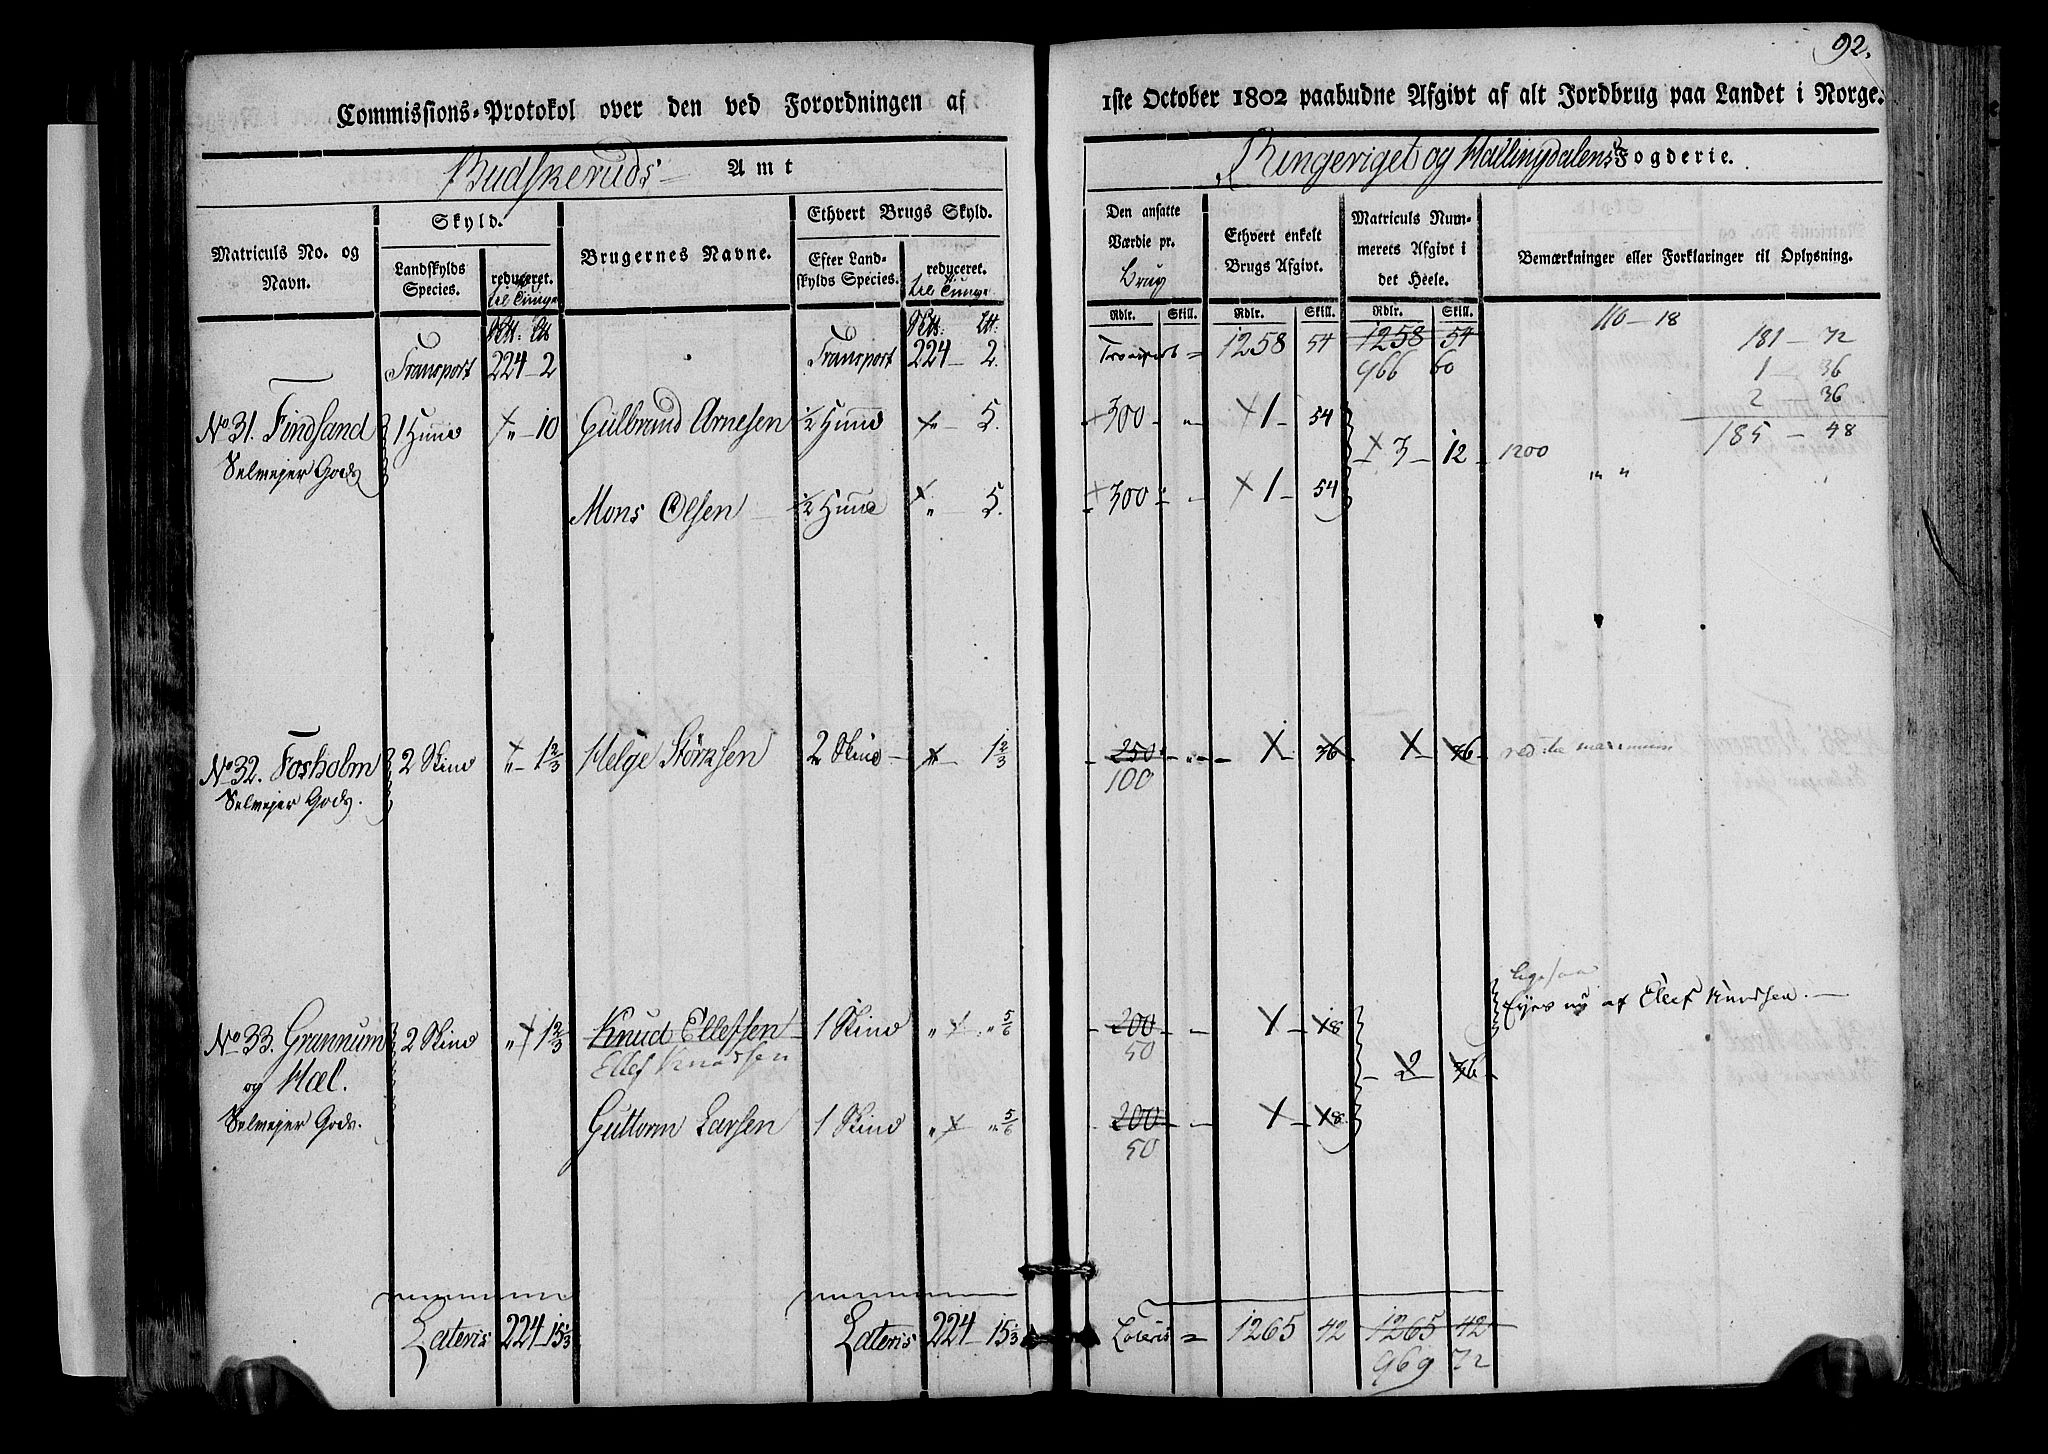 92.
Commissions-Protokol over den ved Forordningen af 1ste October 1802 paabudne Afgivt af alt Jordbrug paa Landet i Norge.
Budskeruds Amt
Ringeriget og Hallingdalens Fogderie.
Matriculs No. og Navn.
Skyld.
Landskylds Species.
reduceret. til Tunge
Brugernes Navne.
Ethvert Brugs Skyld.
Efter Landskylds Species.
reduceret. til Tunge
Den ansatte Værdie pr. Brug
Ethvert enkelt Brugs Afgivt.
Matriculs Nummerets Afgivt i det Heele.
Bemærkninger eller Forklaringer til Oplysning.
Rdlr. Skill. Rdlr. Skill. Rdlr. Skill.
110 - 18
Transport 224 - 2 Transport 224 - 2. Transport = 1258 54 1258 54 181 - 72
966 60 1 - 36
2 36
No 31. Findsand 1 Hund " - 10 Gulbrand Arnesen 1/2 Hund " - 5. 300 - " - 1 - 54
3 - 12 1200 185 - 48
Selvejer Gods
" "
Mons Olsen 1/2 Hund " - 5. 300 - " - 1 - 54
No 32. Fosholm 2 Skind " - 1 2/3 Helge Störksen 2 Skind " - 1 2/3 250 - " - 1 36 1 36
Selvejer Gods. 100
ligesaa
Ejes nu af Ellef Knudsen.
No 33. Grannum 2 Skind " 1 2/3 Knud Ellefsen 1 Skind " " 5/6 200 - " - 1 - 18
Ellef Knudsen 50
og Hæl. 2 36
Selvejer Gods. Guttorm Larsen 1 Skind " " 5/6 200 - " - 1 - 18
50
Lateris 224 - 15 1/3 Lateris 224 - 15 1/3 Lateris = 1265 42 1265 42
969 72